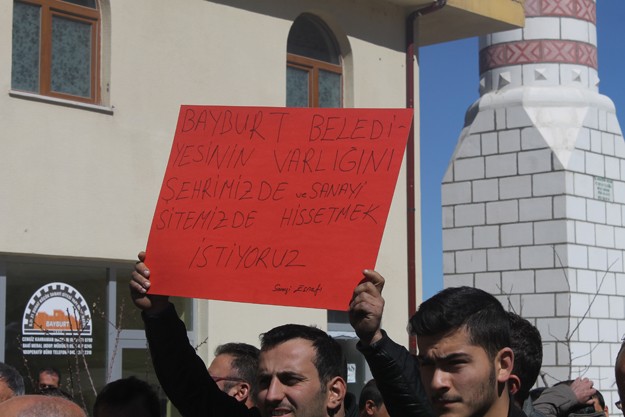 BAYBURT BELEDİ-
YESİNİN VARLIĞINI
ŞEHRİMİZDE ve SANAYİ
SİTEMİZDE HİSSETMEK
İSTİYORUZ
Sanayi Esnafı
BAYBURT